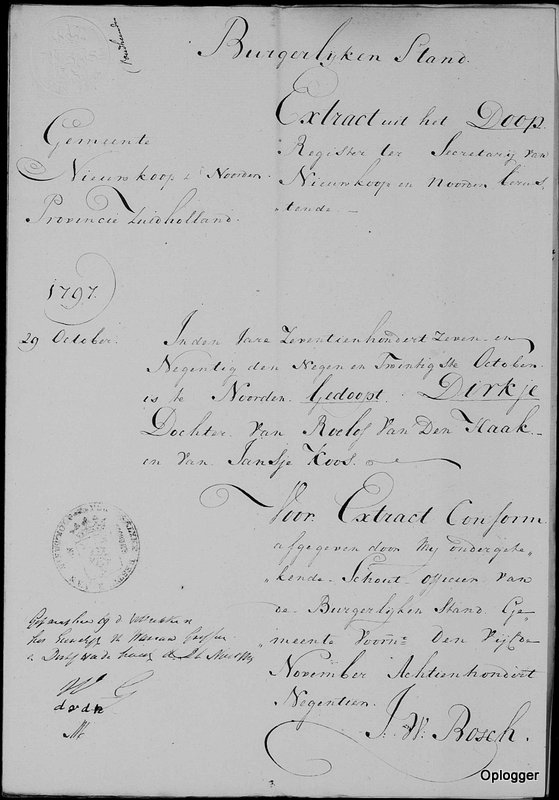 Burgerlyken Stand.
Extract uit het Doop
Register ter Secretarij van
Nieuwkoop en Noorden berus
"tende. —
Gemeente
Nieuwkoop & Noorden
Provincie Zuidholland.
1797.
29 October.
Inden Jare Zeventienhondert Zeven en
Negentig den Negen en Twintigste October
is te Noorden Gedoopt. Dirkje
Dochter van Roelof Van Den Haak
en van Jansje Koos.
Voor Extract Conform
afgegeven door My ondergete
"kende Schout officier van
de Burgerlyken Stand Ge
"meente Voorn: Den Vijfde
November Achtienhondert
Negentien.
J: W: Bosch.
W G
dvdh
Oplogger